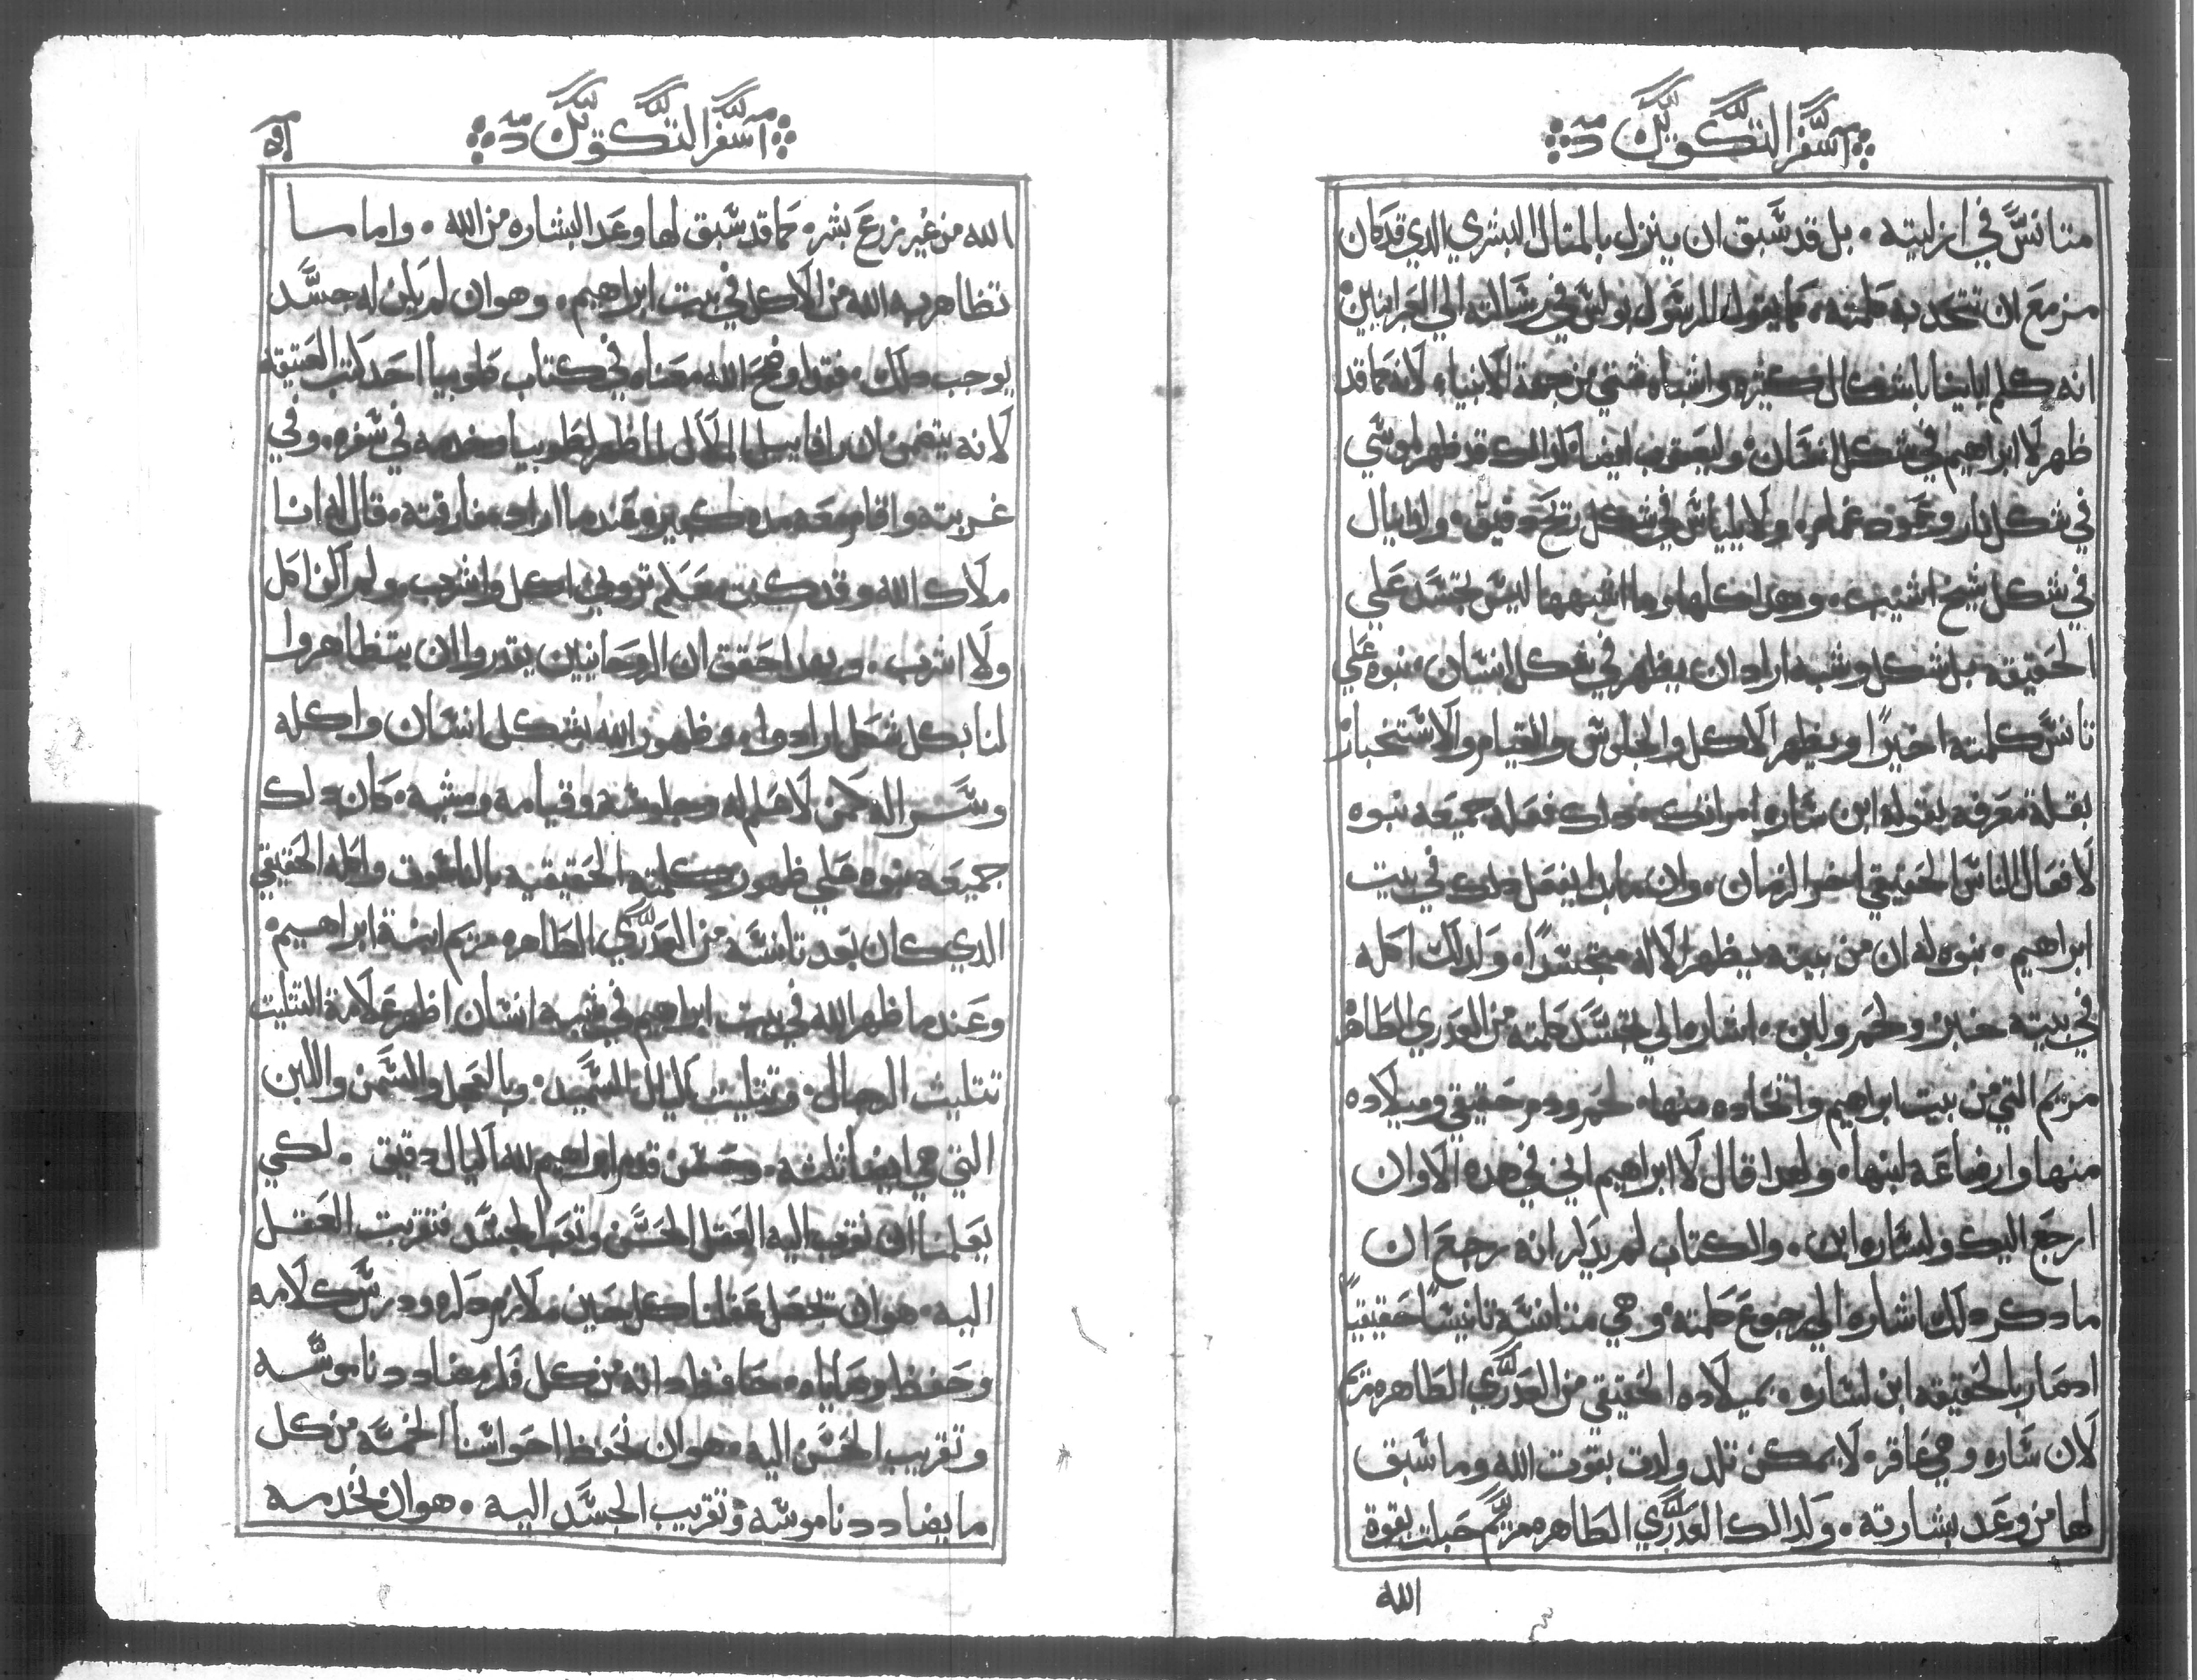 سفر التكوين
متانس في ازليته . بل قد سبق ان ينزل بالمتال البشري الدي قد كان
مزمع ان تتحد به كلمته . كما يقول الرسول بولس في رسالته الي العبرانيين
انه كلم ابائنا باشكال كتيره واشباه شتي من جهة الانبياء . لانه كما قد
ظهر لابراهيم في شكل انسان . وليعقوب ايضا كذالك قد ظهر لموسي
في شكل نار وعمود غمام . ولايلياس في شكل ريح دقيق . ودانيال
في شكل شيخ اشيب . وهدا كلها وما اشبهها ليس تجسد علي
الحقيقه بل شكل وشبه اراد ان يظهر في شكل انسان . نبوه علي
تانس كلمته اخيرًا ويظهر الاكل والجلوس والقيام والاستخبار
بقلة معرفه بقوله اين ساره امراتك . ودلك فعله جميعه نبوه
لافعال الناس الحقيقي اخر الزمان . وان ما بدا يفعل دلك في بيت
ابراهيم . نبوه له ان من بيته يظهر الاله متجسدًا . وكدلك اكله
في بيته خبز ولحم ولبن . اشاره الي تجسد كلمته من العدري الطاهر
مريم التي من بيت ابراهيم واتخاده منها . لحم ودم حقيقي وميلاده
منها وارضاعه لبنها . ولهدا قال لابراهيم اني في هده الاوان
ارجع اليك ولساره ابن . والكتاب لم يدكر انه رجع ان
ما دكر دلك اشاره الي رجوع كلمته وهي متانسه تانيسًا حقيقيًا
اد صار بالحقيقه ابن لساره . بميلاده الحقيقي من العدري الطاهره مريم
لان ساره وهي عاقره لا يمكن تلد ولدت بقوت الله وما سبق
لها من وعد بشارته . وكدالك العدري الطاهره مريم حبلت بقوة
الله
سفر التكوين
الله من غير زرع بشر . كما قد سبق لها وعد البشاره من الله . واما ما
تظاهر به الله من الاكل في بيت ابراهيم . وهو ان لم يكن له جسد
يوجب دلك . فقد اوضح الله معناه في كتاب طوبيا احد كتب العتيقه
لانه يتضمن ان رافاييل الملاك لما ظهر لطوبيا وخدمه في سفره . وفي
غربته واقام معه مده كبير وعندما اراد مفارقته . قال له انا
ملاك الله وقد كنت معكم تروني اكل واشرب . ولم اكن اكل
ولا اشرب . وبهدا حقق ان الروحانيين يقدروا ان يتظاهروا
لنا بكل شكل ارادوا . وظهور الله بشكل انسان واكله
وشربه كمن لا علم له وجلوسه وقيامه ومشيه . كان دلك
جميعه نبوه علي ظهور كلمته الحقيقيه بالناسوت واكله الحقيقي
الدي كان بعد تانسه من العدري الطاهره مريم ابنة ابراهيم .
وعندما ظهر الله في بيت ابراهيم في شبه انسان اظهر علامة التتليت
تتليت الرجال . وتتليت كيال السميد . وبالعجل والسمن واللبن
التي هي ايضا تلته . وحسن قدم ابراهيم لله اكيال دقيق . لكي
يعلمنا ان نقرب اليه العقل الحسن وتعب الجسد فتقريب العقل
اليه . هو ان نجعل عقلنا كل حين ملازم دكره ودرس كلامه
وحفظ وصاياه . حافظ داته من كل فكر مضادد ناموسه
وتقريب الحسن اليه . هو ان نحفظ احواسنا الخمسه من كل
ما يضادد ناموسه وتقريب الجسد اليه . هو ان نخدمه